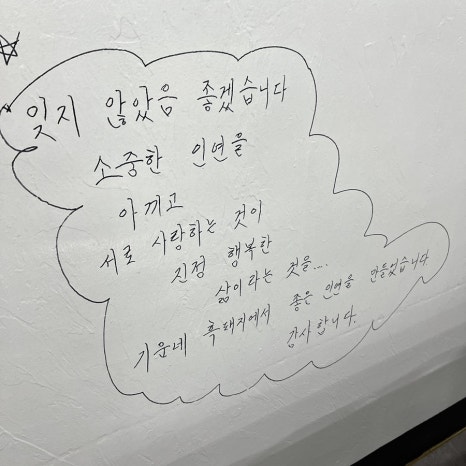 잊지 않았음 좋겠습니다
소중한 인연을
아끼고
서로 사랑하는 것이
진정 행복한
삶이라는 것을....
기운네 흑돼지에서 좋은 인연을 만들었습니다
감사합니다.